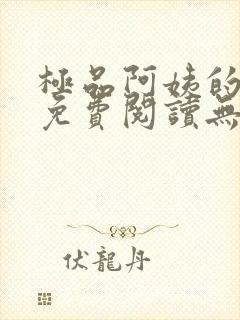 極品阿姨的
免費閱讀無
伏龍丹